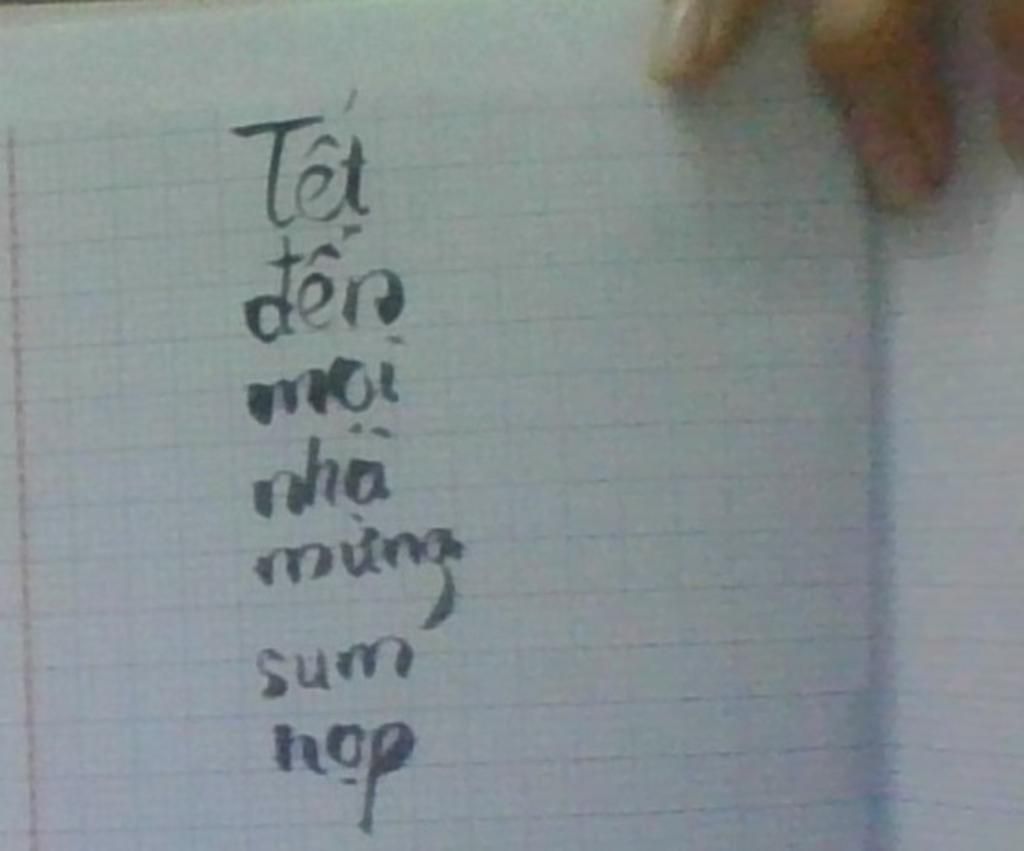 Tết
đến
mọi
nhà
mừng
sum
họp